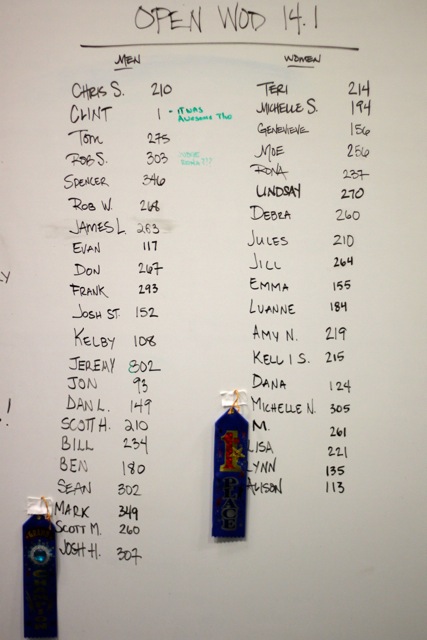 OPEN WOD 14.1
MEN
CHRIS S. 210
CLINT 1 - IT WAS AWESOME THO
TOM 275
ROB S. 303
SPENCER 346
ROB W. 268
JAMES L. 263
EVAN 117
DON 267
FRANK 293
JOSH ST. 152
KELBY 108
JEREMY 302
JON 93
DAN L. 149
SCOTT H. 210
BILL 234
BEN 180
SEAN 302
MARK 349
SCOTT M. 260
JOSH H. 307
WOMEN
TERI 214
MICHELLE S. 194
GENEVIEVE 156
MOE 256
RONA 237
LINDSAY 270
DEBRA 260
JULES 210
JILL 264
EMMA 155
LUANNE 184
AMY N. 219
KELLI S. 215
DANA 124
MICHELLE N. 305
M. 261
LISA 221
LYNN 135
ALISON 113
1st
PLACE